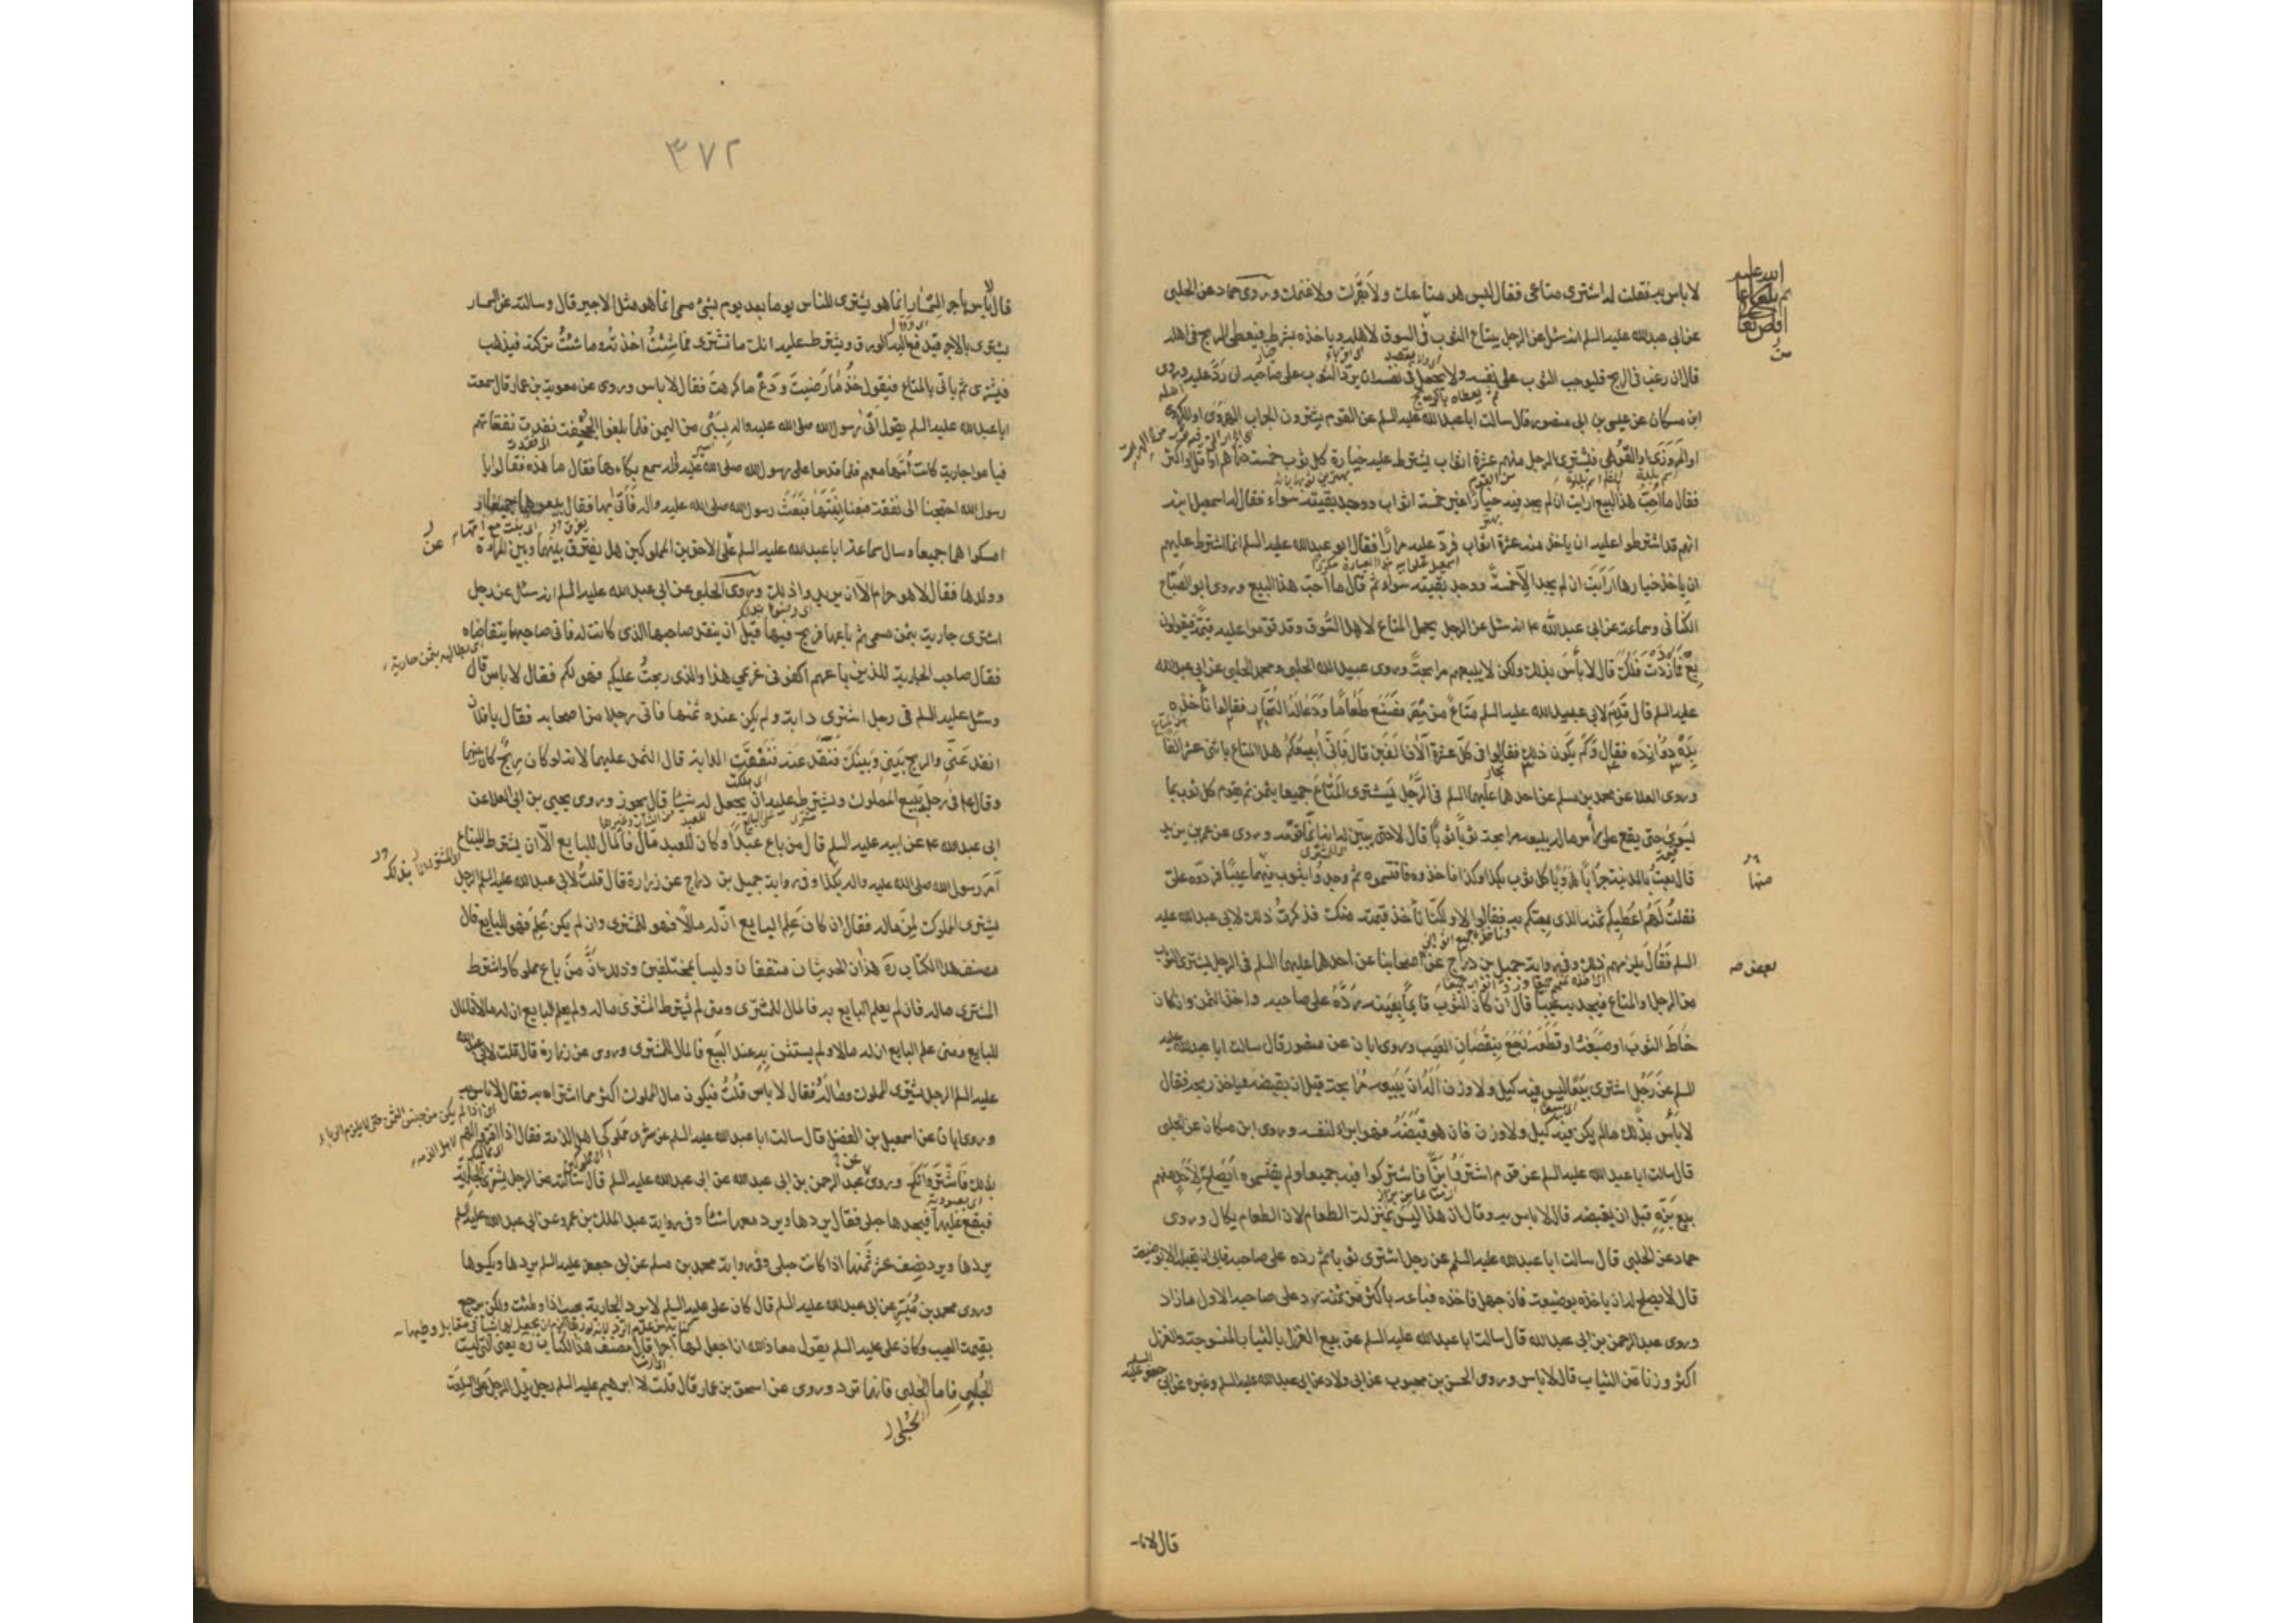 لا باس به فقلت له اشترى متاعى فقال ليس هو متاعك ولا بقرك ولا غنمك وروى حماد عن الحلبى
عن ابى عبدالله عليه السلم انه سئل عن الرجل يبتاع الثوب فى السوق لاهله وياخذه بشرط فيعطى الربح فى اهله
قال ان رغب فى الربح فليوجب الثوب على نفسه ولا يجعل فى نفسه ان يرد الثوب على صاحبه ان رد عليه وروى
ابن مسكان عن عيسى بن ابى منصور قال سالت ابا عبدالله عليه السلم عن القوم يشترون الجراب الهروى او الكروى
او المروزى او القوهى فيشترى الرجل منهم عشرة اثواب يشترط عليه خياره كل ثوب خمسة دراهم او اقل او اكثر
فقال ما احب هذا البيع ارايت ان لم يجد فيه خيارا غير خمسة اثواب ووجد بقيته سواء فقال له اسمعيل ابنه
انهم قد اشترطوا عليه ان ياخذ منه عشرة اثواب فرد عليه مرارا فقال ابو عبدالله عليه السلم انما اشترط عليهم
ان ياخذ خيارها ارايت ان لم يجد الا خمسة ووجد بقيته سواء ثم قال ما احب هذا البيع وروى ابو الصباح
الكنانى وسماعة عن ابى عبدالله ع انه سئل عن الرجل يحمل المتاع لاهل السوق وقد قوموا عليه قيمة فيقولون
بع فما ازددت فلك قال لا بأس بذلك ولكن لا يبيعهم مرابحة وروى عبيدالله الحلبى ومحمد الحلبى عن ابى عبدالله
عليه السلم قال قدم لابى عبدالله عليه السلم متاع من مصر فصنع طعاما ودعا له التجار فقالوا نأخذه
بده دوازده فقال وكم يكون ذلك فقالوا فى كل عشرة آلاف الفين قال فانى ابيعكم هذا المتاع باثنى عشر الفا
وروى العلا عن محمد بن مسلم عن احدهما عليهما السلم فى الرجل يشترى المتاع جميعا بثمن ثم يقوم كل ثوب بما
يسوى حتى يقع على رأس ماله يبيعه مرابحة ثوبا ثوبا قال لا حتى يبين له انما قومه وروى عن عمر بن يزيد
قال بعت بالمدينة جرابا هرويا كل ثوب بكذا وكذا فاخذوه فاقتسموه ثم وجدوا بثوب منها عيبا فردوه على
فقلت لهم اعطيكم ثمنه الذى بعتكم به فقالوا لا ولكنا نأخذ قيمته منك فذكرت ذلك لابى عبدالله عليه
السلم فقال يلزمهم ذلك وفى رواية جميل بن دراج عن اصحابنا عن احدهما عليهما السلم فى الرجل يشترى الثوب
من الرجل او المتاع فيجد به عيبا قال ان كان الثوب قائما بعينه رده على صاحبه واخذ الثمن وان كان
خاط الثوب او صبغه او قطعه رجع بنقصان العيب وروى ابان عن منصور قال سالت ابا عبدالله عليه
السلم عن رجل اشترى بيعا ليس فيه كيل ولا وزن اله ان يبيعه مرابحة قبل ان يقبضه فياخذ ربحه فقال
لا بأس بذلك مالم يكن فيه كيل ولا وزن فان هو قبضه فهو ابرء لنفسه وروى ابن مسكان عن الحلبى
قال سالت ابا عبدالله عليه السلم عن قوم اشتروا بزا فاشتركوا فيه جميعا ولم يقتسموه ايصلح لاحد منهم
بيع بزه قبل ان يقبضه قال لا باس به وقال ان هذا ليس بمنزلة الطعام لان الطعام يكال وروى
حماد عن الحلبى قال سالت ابا عبدالله عليه السلم عن رجل اشترى ثوبا ثم رده على صاحبه فابى ان يقبله الا بوضيعة
قال لا يصلح له ان ياخذه بوضيعة فان جهل فاخذه فباعه باكثر من ثمنه رد على صاحبه الاول ما زاد
وروى عبدالرحمن بن ابى عبدالله قال سالت ابا عبدالله عليه السلم عن بيع الغزل بالثياب المنسوجة والغزل
اكثر وزنا من الثياب قال لا باس وروى الحسن بن محبوب عن ابى ولاد عن ابى عبدالله عليه السلم وغيره عن ابى جعفر عليه السلم
قال لا با
٣٧٢
قال لا بأس باجر السمسار انما هو يشترى للناس يوما بعد يوم بشئ مسمى انما هو مثل الاجير قال وسالته عن السمسار
يشترى بالاجر فيدفع اليه الورق ويشترط عليه انك ما تشترى فما شئت اخذته وما شئت تركته فيذهب
فيشترى ثم ياتى بالمتاع فيقول خذ ما رضيت ودع ما كرهت فقال لا باس وروى عن معوية بن عمار قال سمعت
ابا عبدالله عليه السلم يقول اتى رسول الله صلى الله عليه واله بسبى من اليمن فلما بلغوا الجحفة نفدت نفقاتهم
فباعوا جارية كانت امها معهم فلما قدموا على رسول الله صلى الله عليه واله سمع بكاءها فقال ما هذه فقالوا يا
رسول الله احتجنا الى نفقة فبعنا ابنتها فبعث رسول الله صلى الله عليه واله فاتى بها فقال بيعوهما جميعا او
امسكوهما جميعا وسال سماعة ابا عبدالله عليه السلم عن الاخوين المملوكين هل يفرق بينهما وبين المراة
وولدها فقال لا هو حرام الا ان يريدوا ذلك وروى الحلبى عن ابى عبدالله عليه السلم انه سئل عن رجل
اشترى جارية بثمن مسمى ثم باعها فربح فيها قبل ان ينقد صاحبها الذى كانت له فاتى صاحبها يتقاضاه
فقال صاحب الجارية للذين باعهم اكفونى غريمى هذا والذى ربحت عليكم فهو لكم فقال لا باس قال
وسئل عليه السلم فى رجل اشترى دابة ولم يكن عنده ثمنها فاتى رجلا من اصحابه فقال يا فلان
انقد عنى والربح بينى وبينك فنقد عنه فنفقت الدابة قال الثمن عليهما لانه لو كان ربح كان بينهما
وقال ع فى رجل يبيع المملوك ويشترط عليه ان يجعل له شيئا قال يجوز وروى يحيى بن ابى العلا عن
ابى عبدالله ع عن ابيه عليه السلم قال من باع عبدا وكان للعبد مال فالمال للبايع الا ان يشترط المبتاع
امر رسول الله صلى الله عليه واله بذلك وفى رواية جميل بن دراج عن زرارة قال قلت لابى عبدالله عليه السلم الرجل
يشترى المملوك لمن ماله فقال ان كان علم البايع ان له مالا فهو للمشترى وان لم يكن علم فهو للبايع قال
مصنف هذا الكتاب ره هذان الحديثان متفقان وليسا بمختلفين وذلك ان من باع مملوكا واشترط
المشترى ماله فان لم يعلم البايع به فالمال للمشترى ومتى لم يشترط المشترى ماله ولم يعلم البايع ان له مالا فالمال
للبايع ومتى علم البايع ان له مالا ولم يستثن به عند البيع فالمال للمشترى وروى عن زرارة قال قلت لابى عبدالله
عليه السلم الرجل يشترى المملوك وماله فقال لا باس قلت فيكون مال المملوك اكثر مما اشتراه به فقال لا باس به
وروى ابان عن اسمعيل بن الفضل قال سالت ابا عبدالله عليه السلم عن شرى مملوكى اهل الذمة فقال اذا اقروا لهم
بذلك فاشتر وانكح وروى عبدالرحمن بن ابى عبدالله عن ابى عبدالله عليه السلم قال سالته عن الرجل يشترى الجارية
فيقع عليها فيجدها حبلى فقال يردها ويرد معها شيئا وفى رواية عبدالملك بن عمرو عن ابى عبدالله عليه السلم
يردها ويرد نصف عشر ثمنها اذا كانت حبلى وفى رواية محمد بن مسلم عن ابى جعفر عليه السلم يردها ويكسوها
وروى محمد بن ميسر عن ابى عبدالله عليه السلم قال كان على عليه السلم لا يرد الجارية بعيب اذا وطئت ولكن يرجع
بقيمة العيب وكان على عليه السلم يقول معاذ الله ان اجعل لها اجرا قال مصنف هذا الكتاب ره يعنى التى ليست
بحبلى فاما الحبلى فانها ترد وروى عن اسحق بن عمار قال قلت لابى ابرهيم عليه السلم رجل يدل الرجل على السلعة
الحبلى